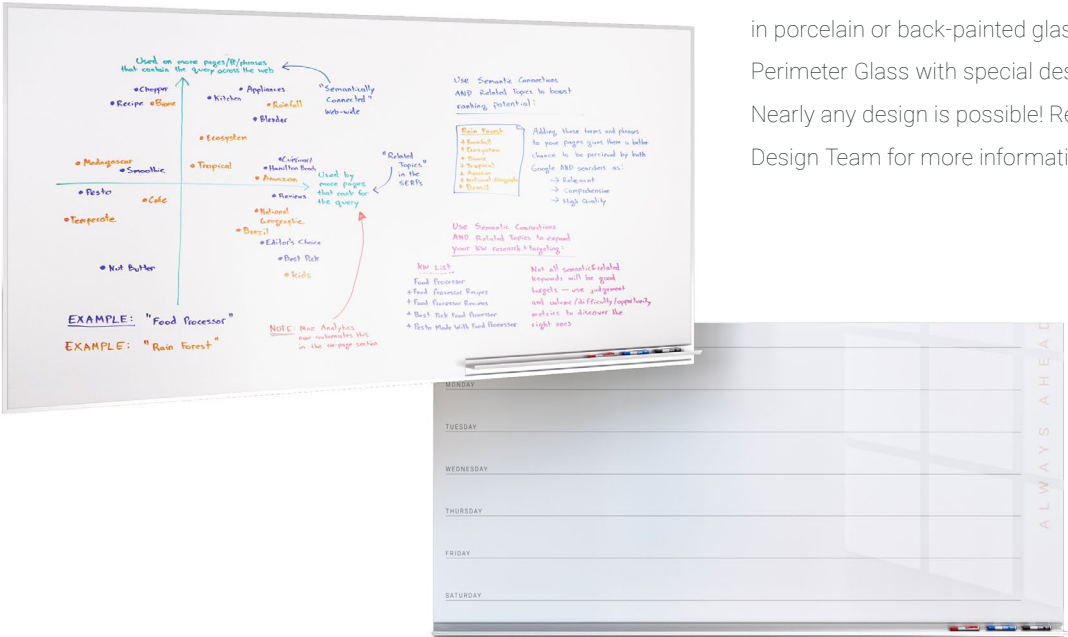 in porcelain or back-painted glas
Perimeter Glass with special des
Nearly any design is possible! Re
Design Team for more informati
Used on more pages/IP/phrases
that contain the query across the web
"Semantically
Connected"
Web-wide
• Chopper
• Recipe • Biome
• Appliances
• Kitchen
• Rainfall
• Blender
• Ecosystem
• Madagascar
• Smoothie
• Tropical
• Cuisinart/
Hamilton Beach
• Amazon
"Related
Topics"
in the
SERPs
Used by
more pages
that rank for
the query
• Pesto
• Coke
• Temperate
• Reviews
• National
Geographic
• Brazil
• Editor's Choice
• Best Pick
• Kids
• Nut Butter
EXAMPLE: "Food Processor"
EXAMPLE: "Rain Forest"
NOTE: Moz Analytics
now automates this
in the on-page section
Use Semantic Connections
AND Related Topics to boost
ranking potential:
Rain Forest
+ Rainfall
+ Ecosystem
+ Biome
+ Tropical
+ Amazon
+ National Geographic
+ Brazil
Adding these terms and phrases
to your pages gives them a better
chance to be perceived by both
Google AND searchers as:
→ Relevant
→ Comprehensive
→ High Quality
Use Semantic Connections
AND Related Topics to expand
your KW research + targeting:
KW List
Food Processor
+ Food Processor Recipes
+ Food Processor Reviews
+ Best Pick Food Processor
+ Pesto Made With Food Processor
Not all semantic & related
keywords will be good
targets — use judgement
and volume/difficulty/opportunity
metrics to discover the
right ones
MONDAY
TUESDAY
WEDNESDAY
THURSDAY
FRIDAY
SATURDAY
ALWAYS AHEAD